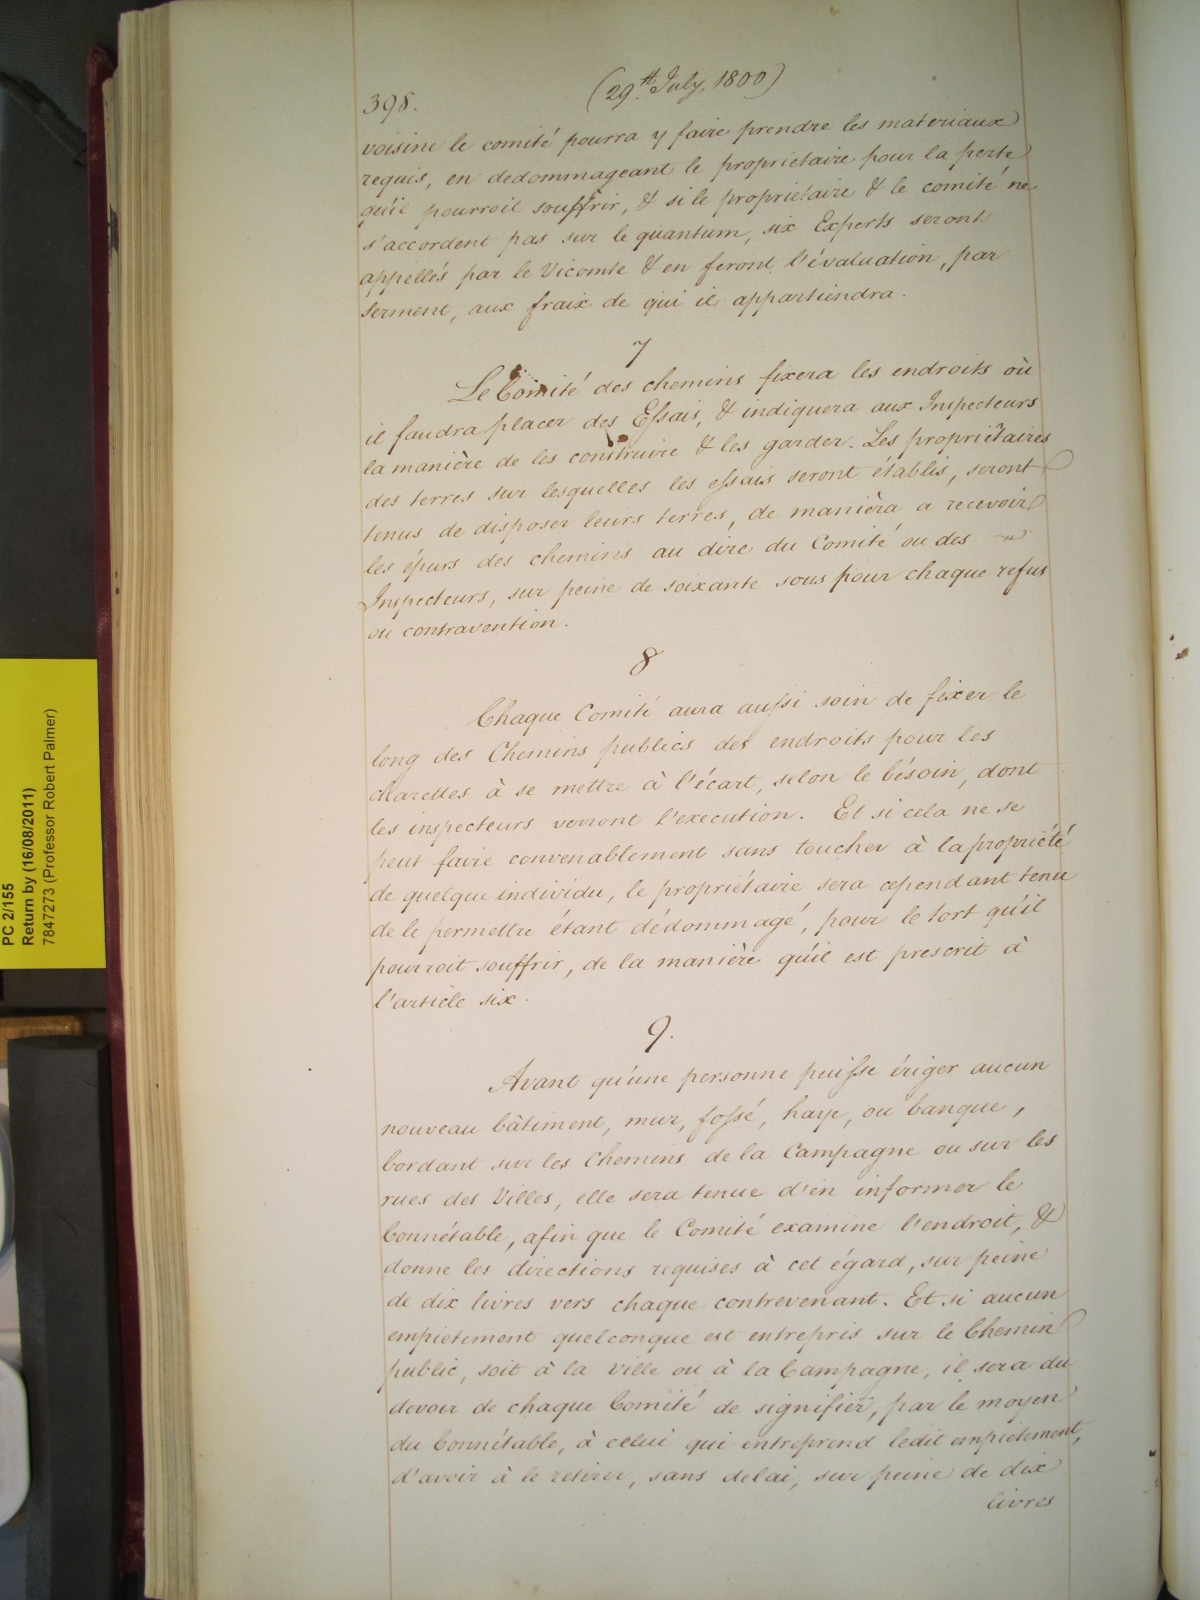 398.
(29th July, 1800)
voisine le comité pourra y faire prendre les materiaux
requis, en dedommageant le proprietaire pour la perte
qu'il pourroit souffrir, & si le proprietaire & le comité ne
s'accordent pas sur le quantum, six Experts seront
appellés par le Vicomte & en feront l'évaluation, par
serment, aux fraix de qui il appartiendra.
7
Le Comité des chemins fixera les endroits où
il faudra placer des Essais, & indiquera aux Inspecteurs
la manière de les construire & les garder. Les propriétaires
des terres sur lesquelles les essais seront établis, seront
tenus de disposer leurs terres, de manièra a recevoir
les épurs des chemins au dire du Comité ou des
Inspecteurs, sur peine de soixante sous pour chaque refus
ou contravention.
8
Chaque Comité aura aussi soin de fixer le
long des Chemins publics des endroits pour les
charettes à se mettre à l'écart, selon le bésoin, dont
les inspecteurs verront l'execution. Et si cela ne se
peut faire convenablement sans toucher à la propriété
de quelque individu, le propriétaire sera cependant tenu
de le permettre étant dédommagé, pour le tort qu'il
pourroit souffrir, de la manière qu'il est prescrit à
l'article six.
9.
Avant qu'une personne puisse ériger aucun
nouveau bâtiment, mur, fossé, haye, ou banque,
bordant sur les Chemins de la Campagne ou sur les
rues des Villes, elle sera tenue d'en informer le
Connétable, afin que le Comité examine l'endroit, &
donne les directions requises à cet égard, sur peine
de dix livres vers chaque contrevenant. Et si aucun
empietement quelconque est entrepris sur le Chemin
public, soit à la ville ou à la Campagne, il sera du
devoir de chaque Comité de signifier, par le moyen
du Connétable, à celui qui entreprend ledit empietement,
d'avoir à le retirer, sans delai, sur peine de dix
livres
PC 2/155
Return by (16/08/2011)
7847273 (Professor Robert Palmer)